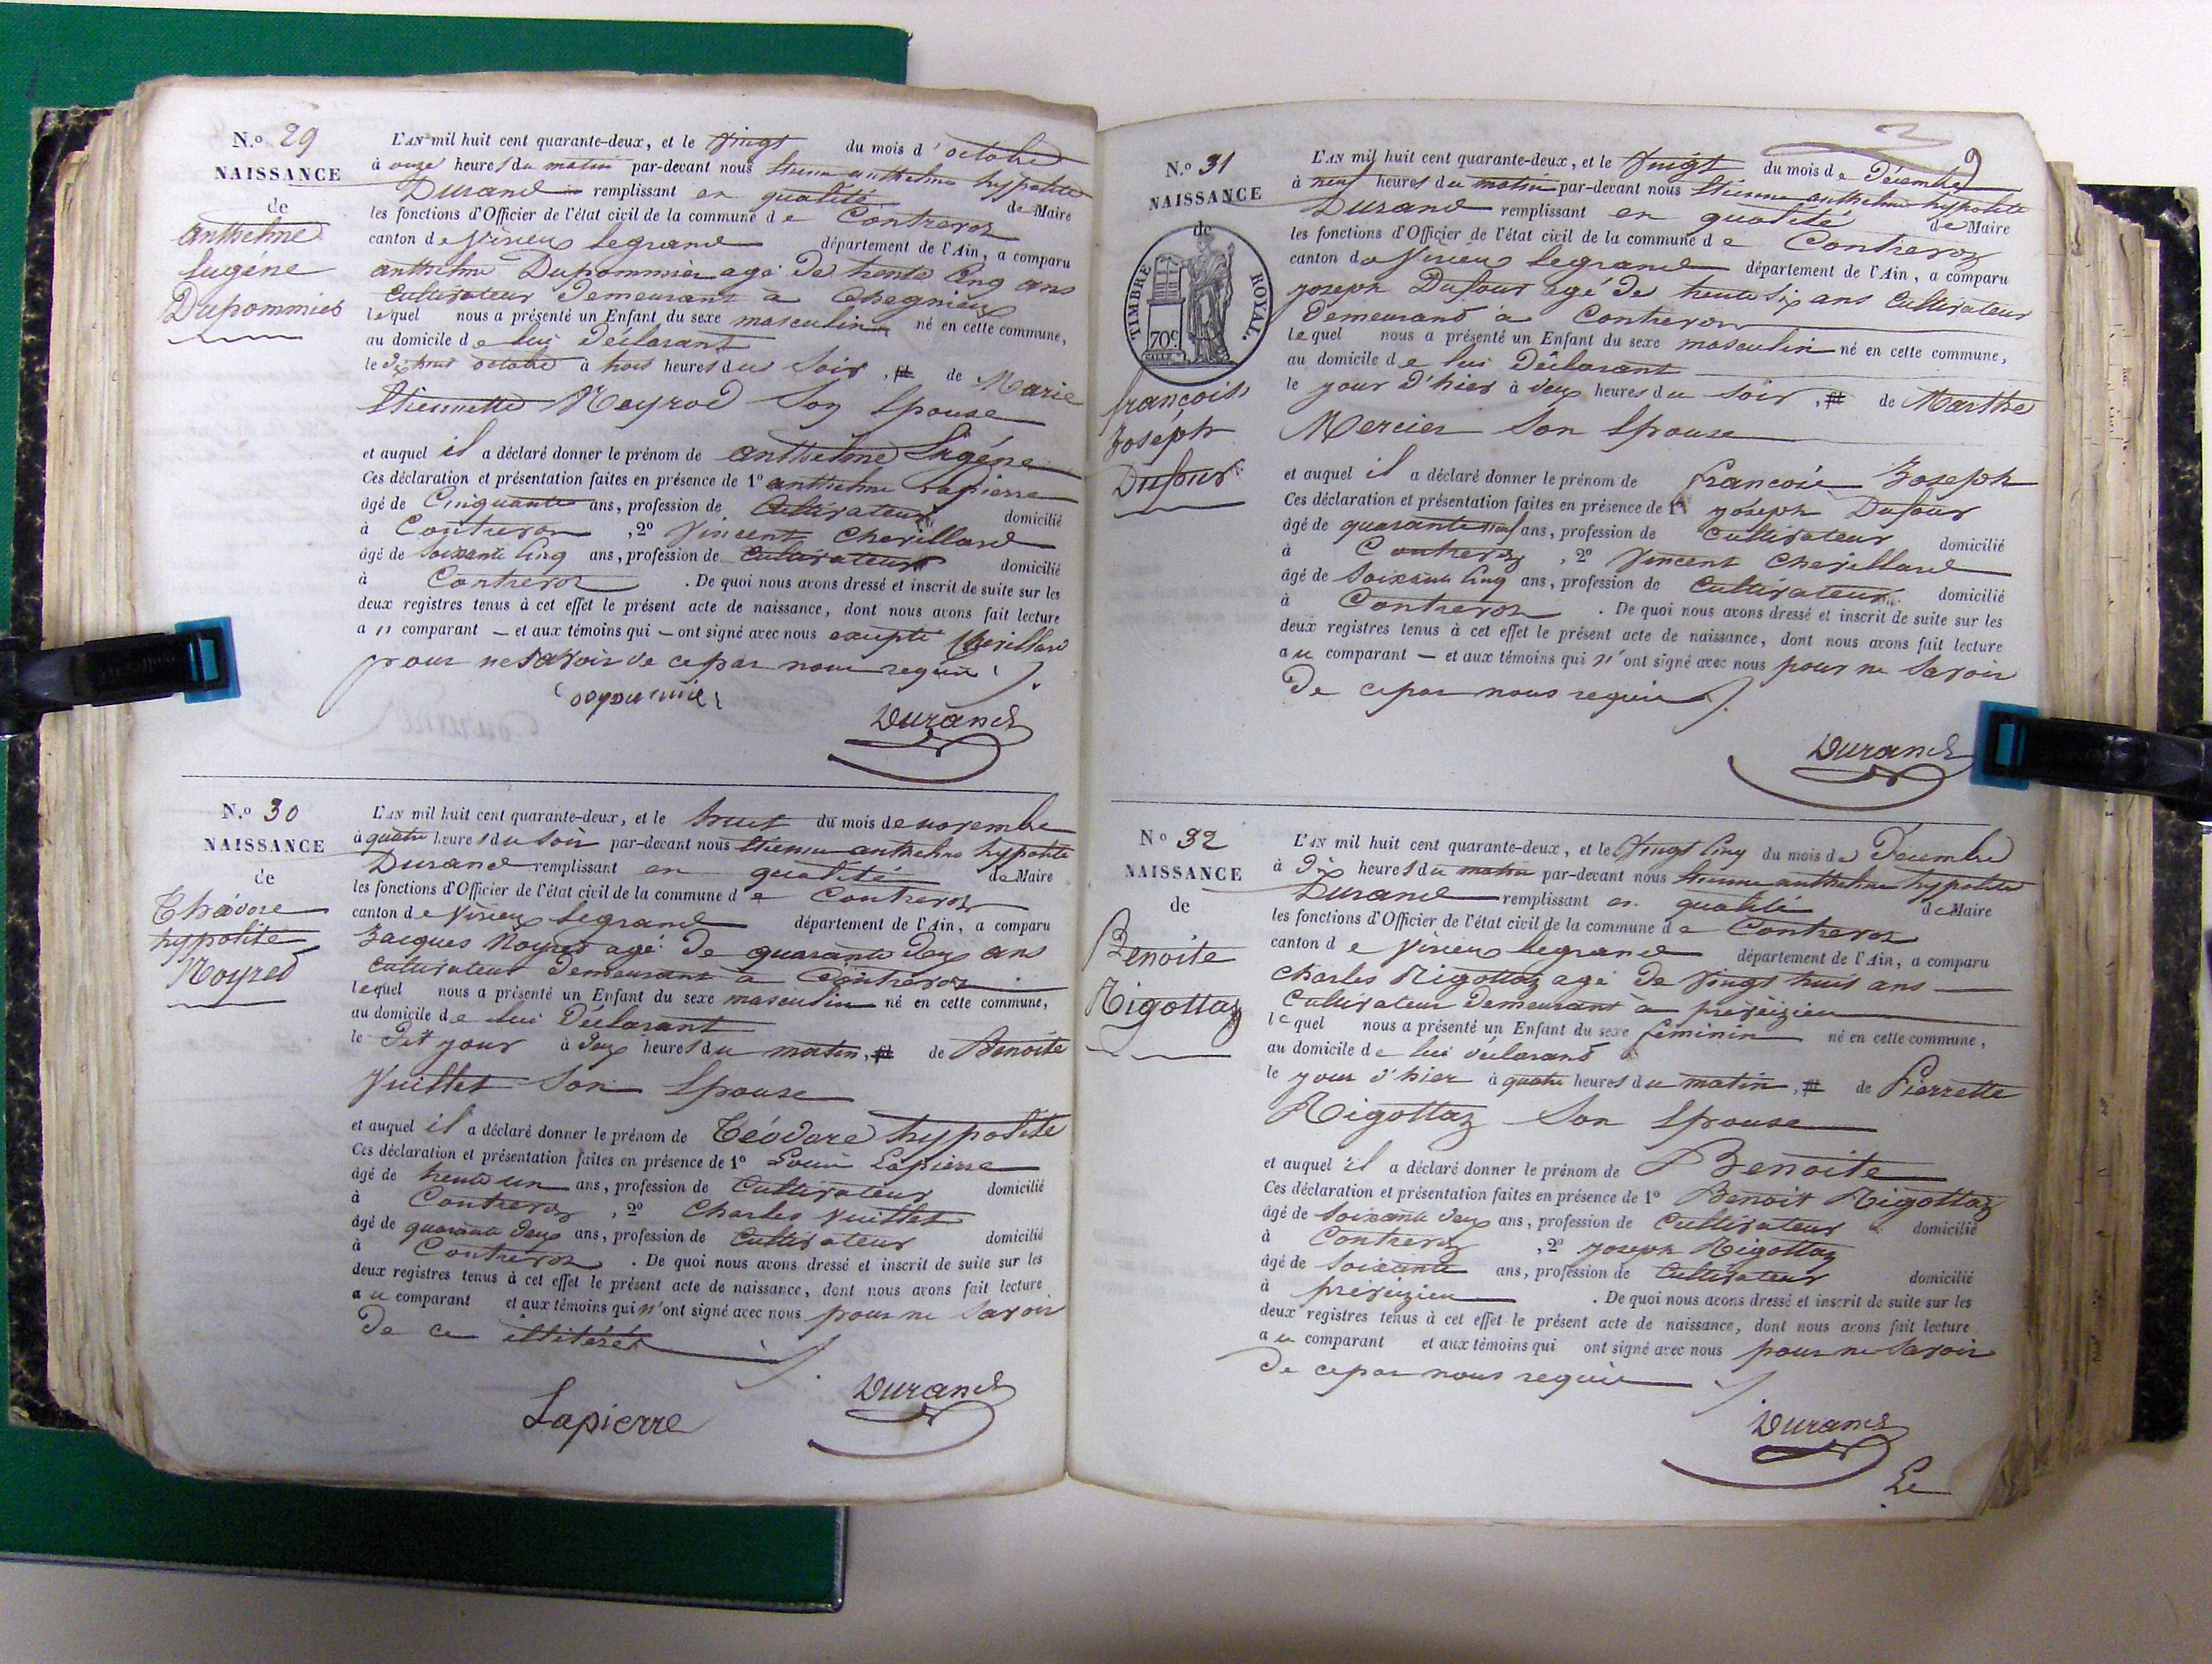 N.o 29
NAISSANCE
de
Anthelme
Eugéne
Dupommier
L'AN mil huit cent quarante-deux, et le Vingt du mois d'octobre
à onze heures du matin par-devant nous Etienne anthelme hypolite
Durand remplissant en qualité de Maire
les fonctions d'Officier de l'état civil de la commune de Contrevoz
canton de Virieu legrand département de l'Ain, a comparu
anthelme Dupommier agé de trente Cinq ans
Cultivateur Demeurant à Chegnieu
lequel nous a présenté un Enfant du sexe masculin né en cette commune,
au domicile de lui Déclarant
le Dix huit octobre à trois heures du Soir, de Marie
Etiennette Noyrod Son Epouse
et auquel il a déclaré donner le prénom de anthelme Eugéne
Ces déclaration et présentation faites en présence de 1º anthelme Lapierre
âgé de Cinquante ans, profession de Cultivateur domicilié
à Contrevoz, 2º Vincent Chevillard
âgé de Soixante Cinq ans, profession de Cultivateur domicilié
à Contrevoz. De quoi nous avons dressé et inscrit de suite sur les
deux registres tenus à cet effet le présent acte de naissance, dont nous avons fait lecture
au comparant — et aux témoins qui — ont signé avec nous excepté Chevillard
pour ne Savoir de ce par nous requis
Durand
N.o 30
NAISSANCE
de
Théodore
hypolite
Noyred
L'AN mil huit cent quarante-deux, et le huit du mois de novembre
à quatre heures du Soir par-devant nous Etienne anthelme hypolite
Durand remplissant en qualité de Maire
les fonctions d'Officier de l'état civil de la commune de Contrevoz
canton de Virieu legrand département de l'Ain, a comparu
Jacques Noyred agé de quarante Deux ans
Cultivateur Demeurant à Contrevoz
lequel nous a présenté un Enfant du sexe masculin né en cette commune,
au domicile de lui Déclarant
le Dit jour à Deux heures du matin, de Benoite
Vuillet Son Epouse
et auquel il a déclaré donner le prénom de Téodore hypolite
Ces déclaration et présentation faites en présence de 1º Louis Lapierre
âgé de trente un ans, profession de Cultivateur domicilié
à Contrevoz, 2º Charles Vuillet
âgé de quarante Deux ans, profession de Cultivateur domicilié
à Contrevoz. De quoi nous avons dressé et inscrit de suite sur les
deux registres tenus à cet effet le présent acte de naissance, dont nous avons fait lecture
au comparant et aux témoins qui n'ont signé avec nous pour ne Savoir
de ce illitérés
Lapierre Durand
N.o 31
NAISSANCE
de
TIMBRE ROYAL.
70c
françois
Joséph
Dufour
L'AN mil huit cent quarante-deux, et le Vingt du mois de Décembre
à neuf heures du matin par-devant nous Etienne anthelme hypolite
Durand remplissant en qualité de Maire
les fonctions d'Officier de l'état civil de la commune de Contrevoz
canton de Virieu legrand département de l'Ain, a comparu
joseph Dufour agé de trente Six ans Cultivateur
Demeurant a Contrevoz
lequel nous a présenté un Enfant du sexe masculin né en cette commune,
au domicile de lui Déclarant
le jour d'hier à deux heures du Soir, de Marthe
Mercier Son Epouse
et auquel il a déclaré donner le prénom de francois Joseph
Ces déclaration et présentation faites en présence de 1º joseph Dufour
âgé de quarante neuf ans, profession de Cultivateur domicilié
à Contrevoz, 2º Vincent Chevillard
âgé de Soixante Cinq ans, profession de Cultivateur domicilié
à Contrevoz. De quoi nous avons dressé et inscrit de suite sur les
deux registres tenus à cet effet le présent acte de naissance, dont nous avons fait lecture
au comparant — et aux témoins qui n'ont signé avec nous pour ne Savoir
De ce par nous requis
Durand
No 32
NAISSANCE
de
Benoite
Rigottaz
L'AN mil huit cent quarante-deux, et le Vingt Cinq du mois de Décembre
à Dix heures du matin par-devant nous Etienne anthelme hypolite
Durand remplissant en qualité de Maire
les fonctions d'Officier de l'état civil de la commune de Contrevoz
canton de Virieu legrand département de l'Ain, a comparu
Charles Rigottaz agé de Vingt huit ans
Cultivateur Demeurant à preveizieu
lequel nous a présenté un Enfant du sexe féminin né en cette commune,
au domicile de lui déclarant
le jour d'hier à quatre heures du matin, de Pierrette
Rigottaz Son Epouse
et auquel il a déclaré donner le prénom de Benoite
Ces déclaration et présentation faites en présence de 1º Benoit Rigottaz
âgé de Soixante Deux ans, profession de Cultivateur domicilié
à Contrevoz, 2º joseph Rigottaz
âgé de Soixante ans, profession de Cultivateur domicilié
à preveizieu. De quoi nous avons dressé et inscrit de suite sur les
deux registres tenus à cet effet le présent acte de naissance, dont nous avons fait lecture
au comparant et aux témoins qui ont signé avec nous pour ne Savoir
De ce par nous requis
Durand
Le